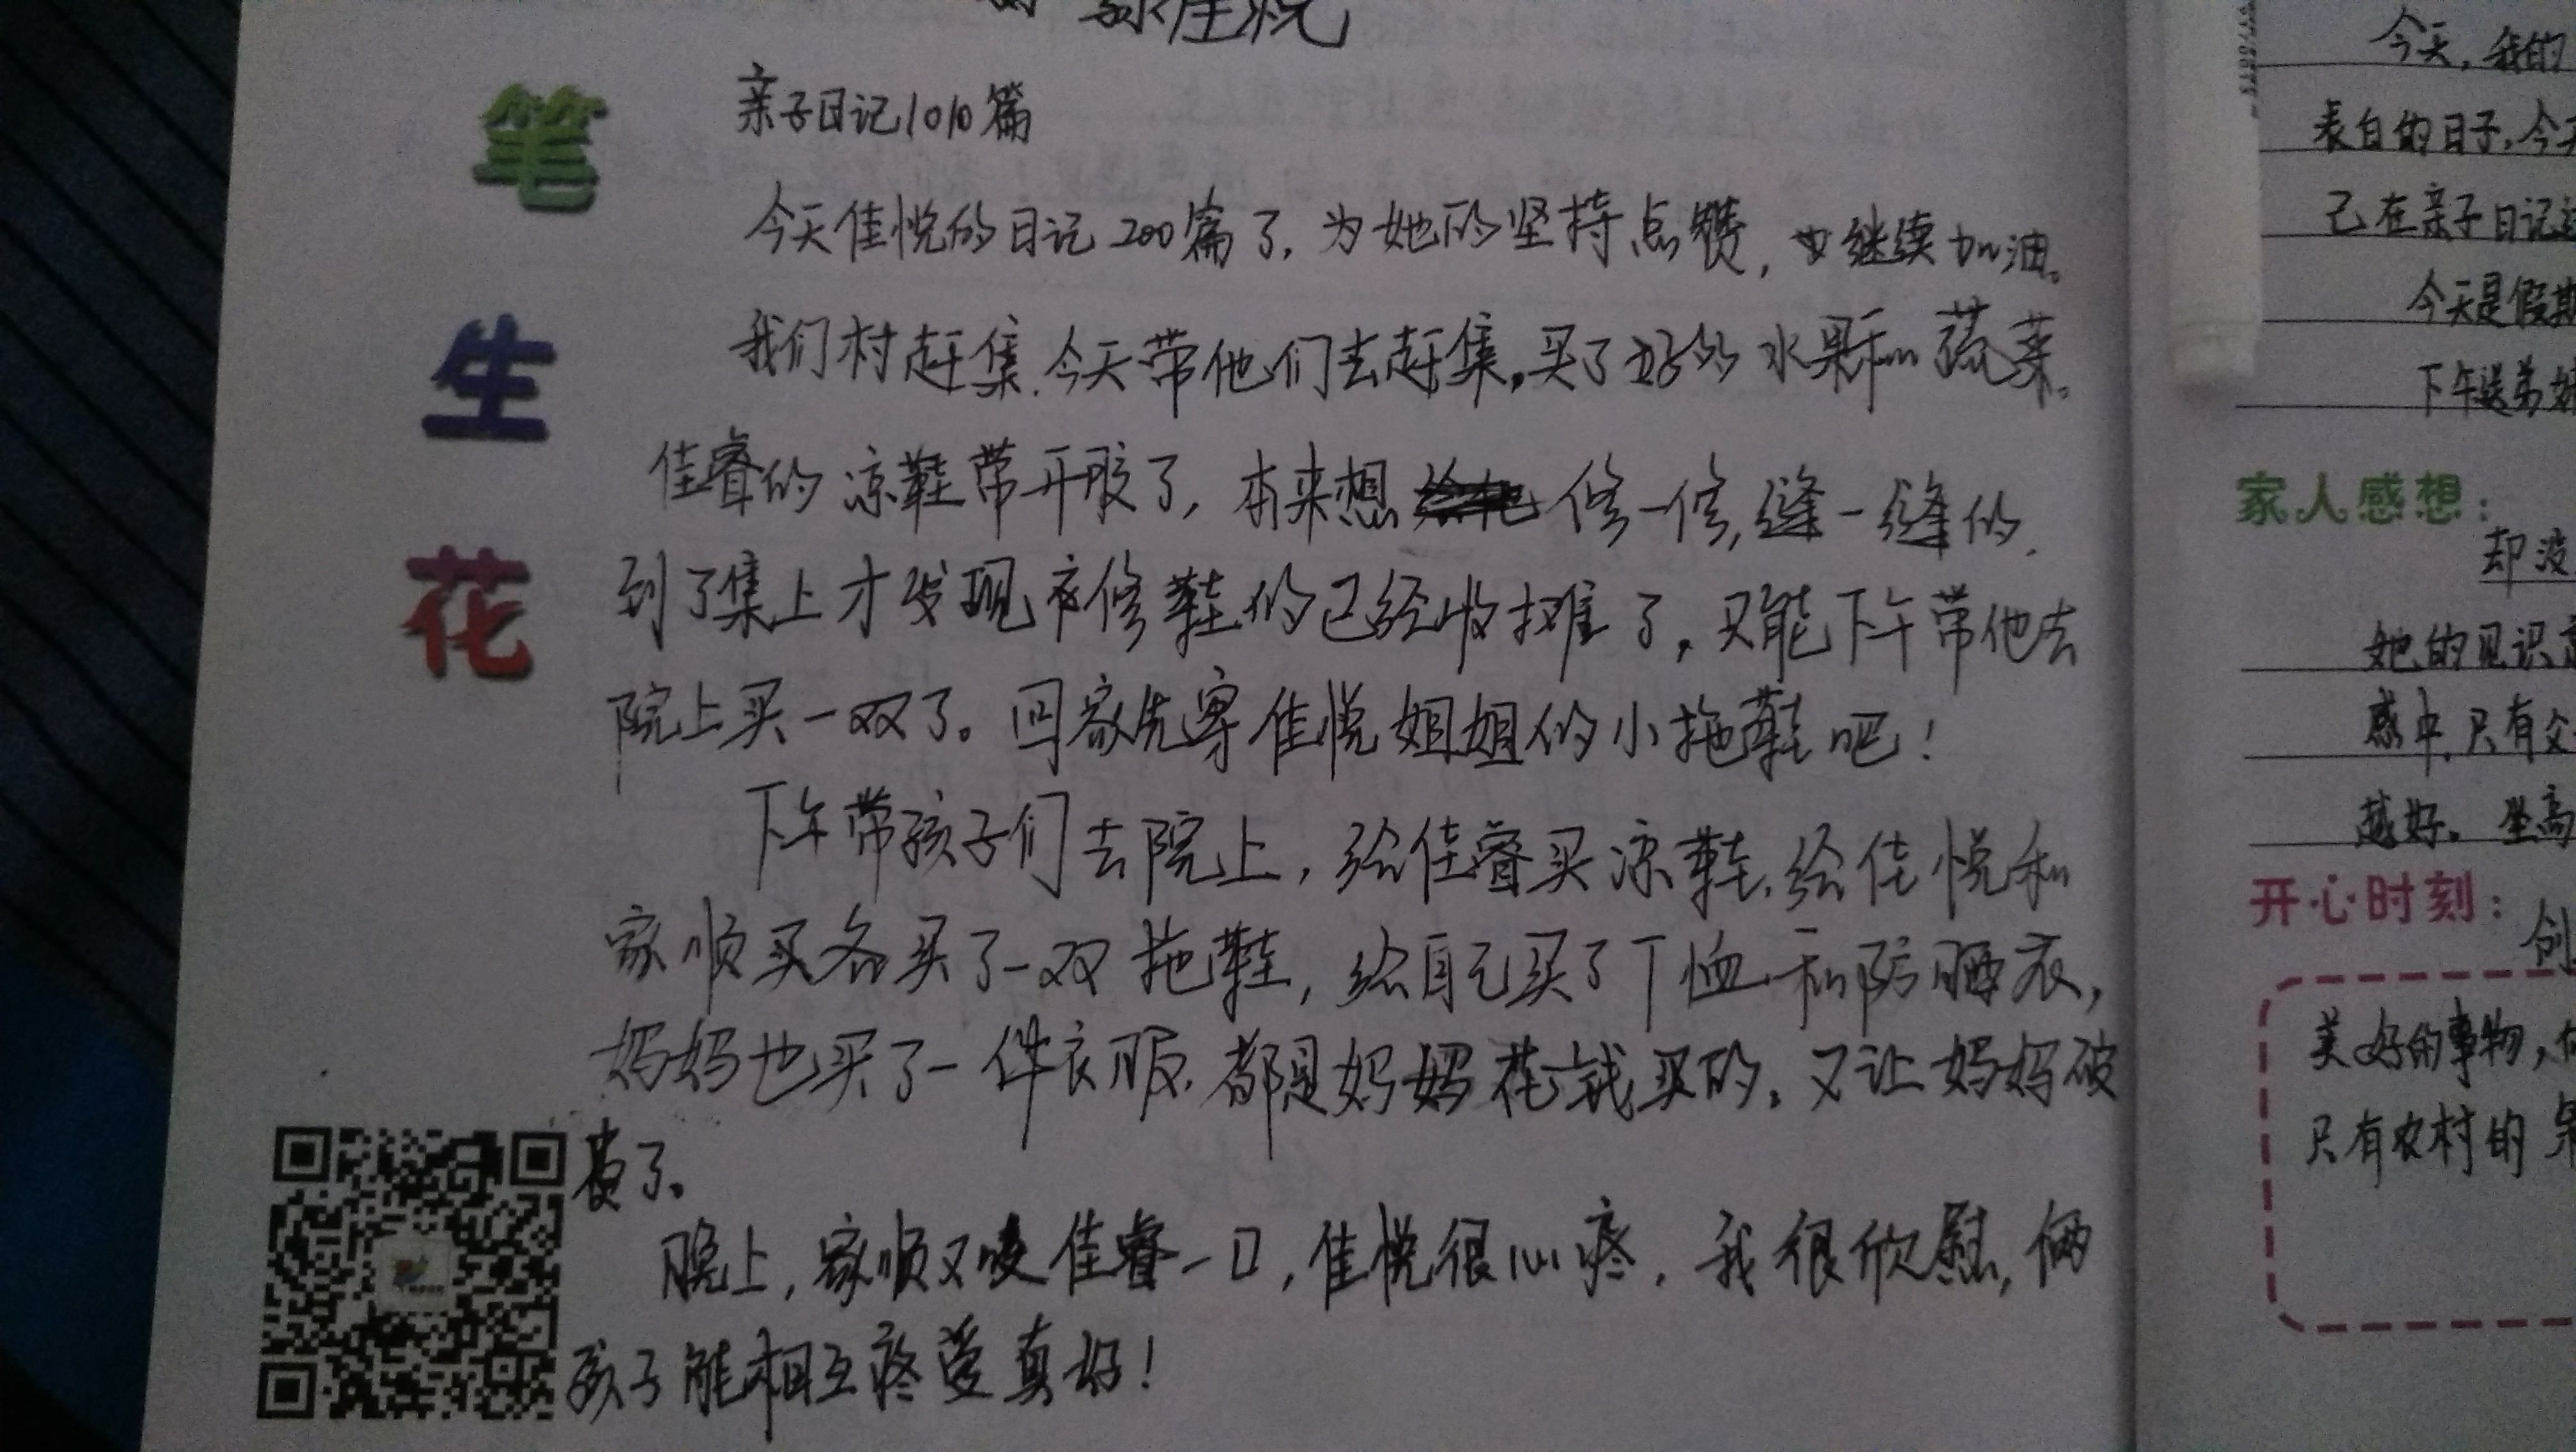 佳悦
笔生花
亲子日记1010篇
今天佳悦的日记200篇了，为她的坚持点赞，要继续加油。
我们村赶集，今天带他们去赶集，买了好的水果和蔬菜。
佳睿的凉鞋带开胶了，本来想修一修，缝一缝的，
到了集上才发现修鞋的已经收摊了，只能下午带他去
院上买一双了。回家先穿佳悦姐姐的小拖鞋吧！
下午带孩子们去院上，给佳睿买凉鞋，给佳悦和
家顺买各买了一双拖鞋，给自己买了T恤和防晒衣，
妈妈也买了一件衣服，都是妈妈花钱买的。又让妈妈破
费了。
晚上，家顺又咬佳睿一口，佳悦很心疼，我很欣慰，俩
孩子能相互疼爱真好！
今天，我的
表白的日子，今天
己在亲子日记
今天是假期
下午送弟
家人感想：
却没
她的见识
感中，只有父
越好。坐高
开心时刻：
创
美好的事物，
只有农村的